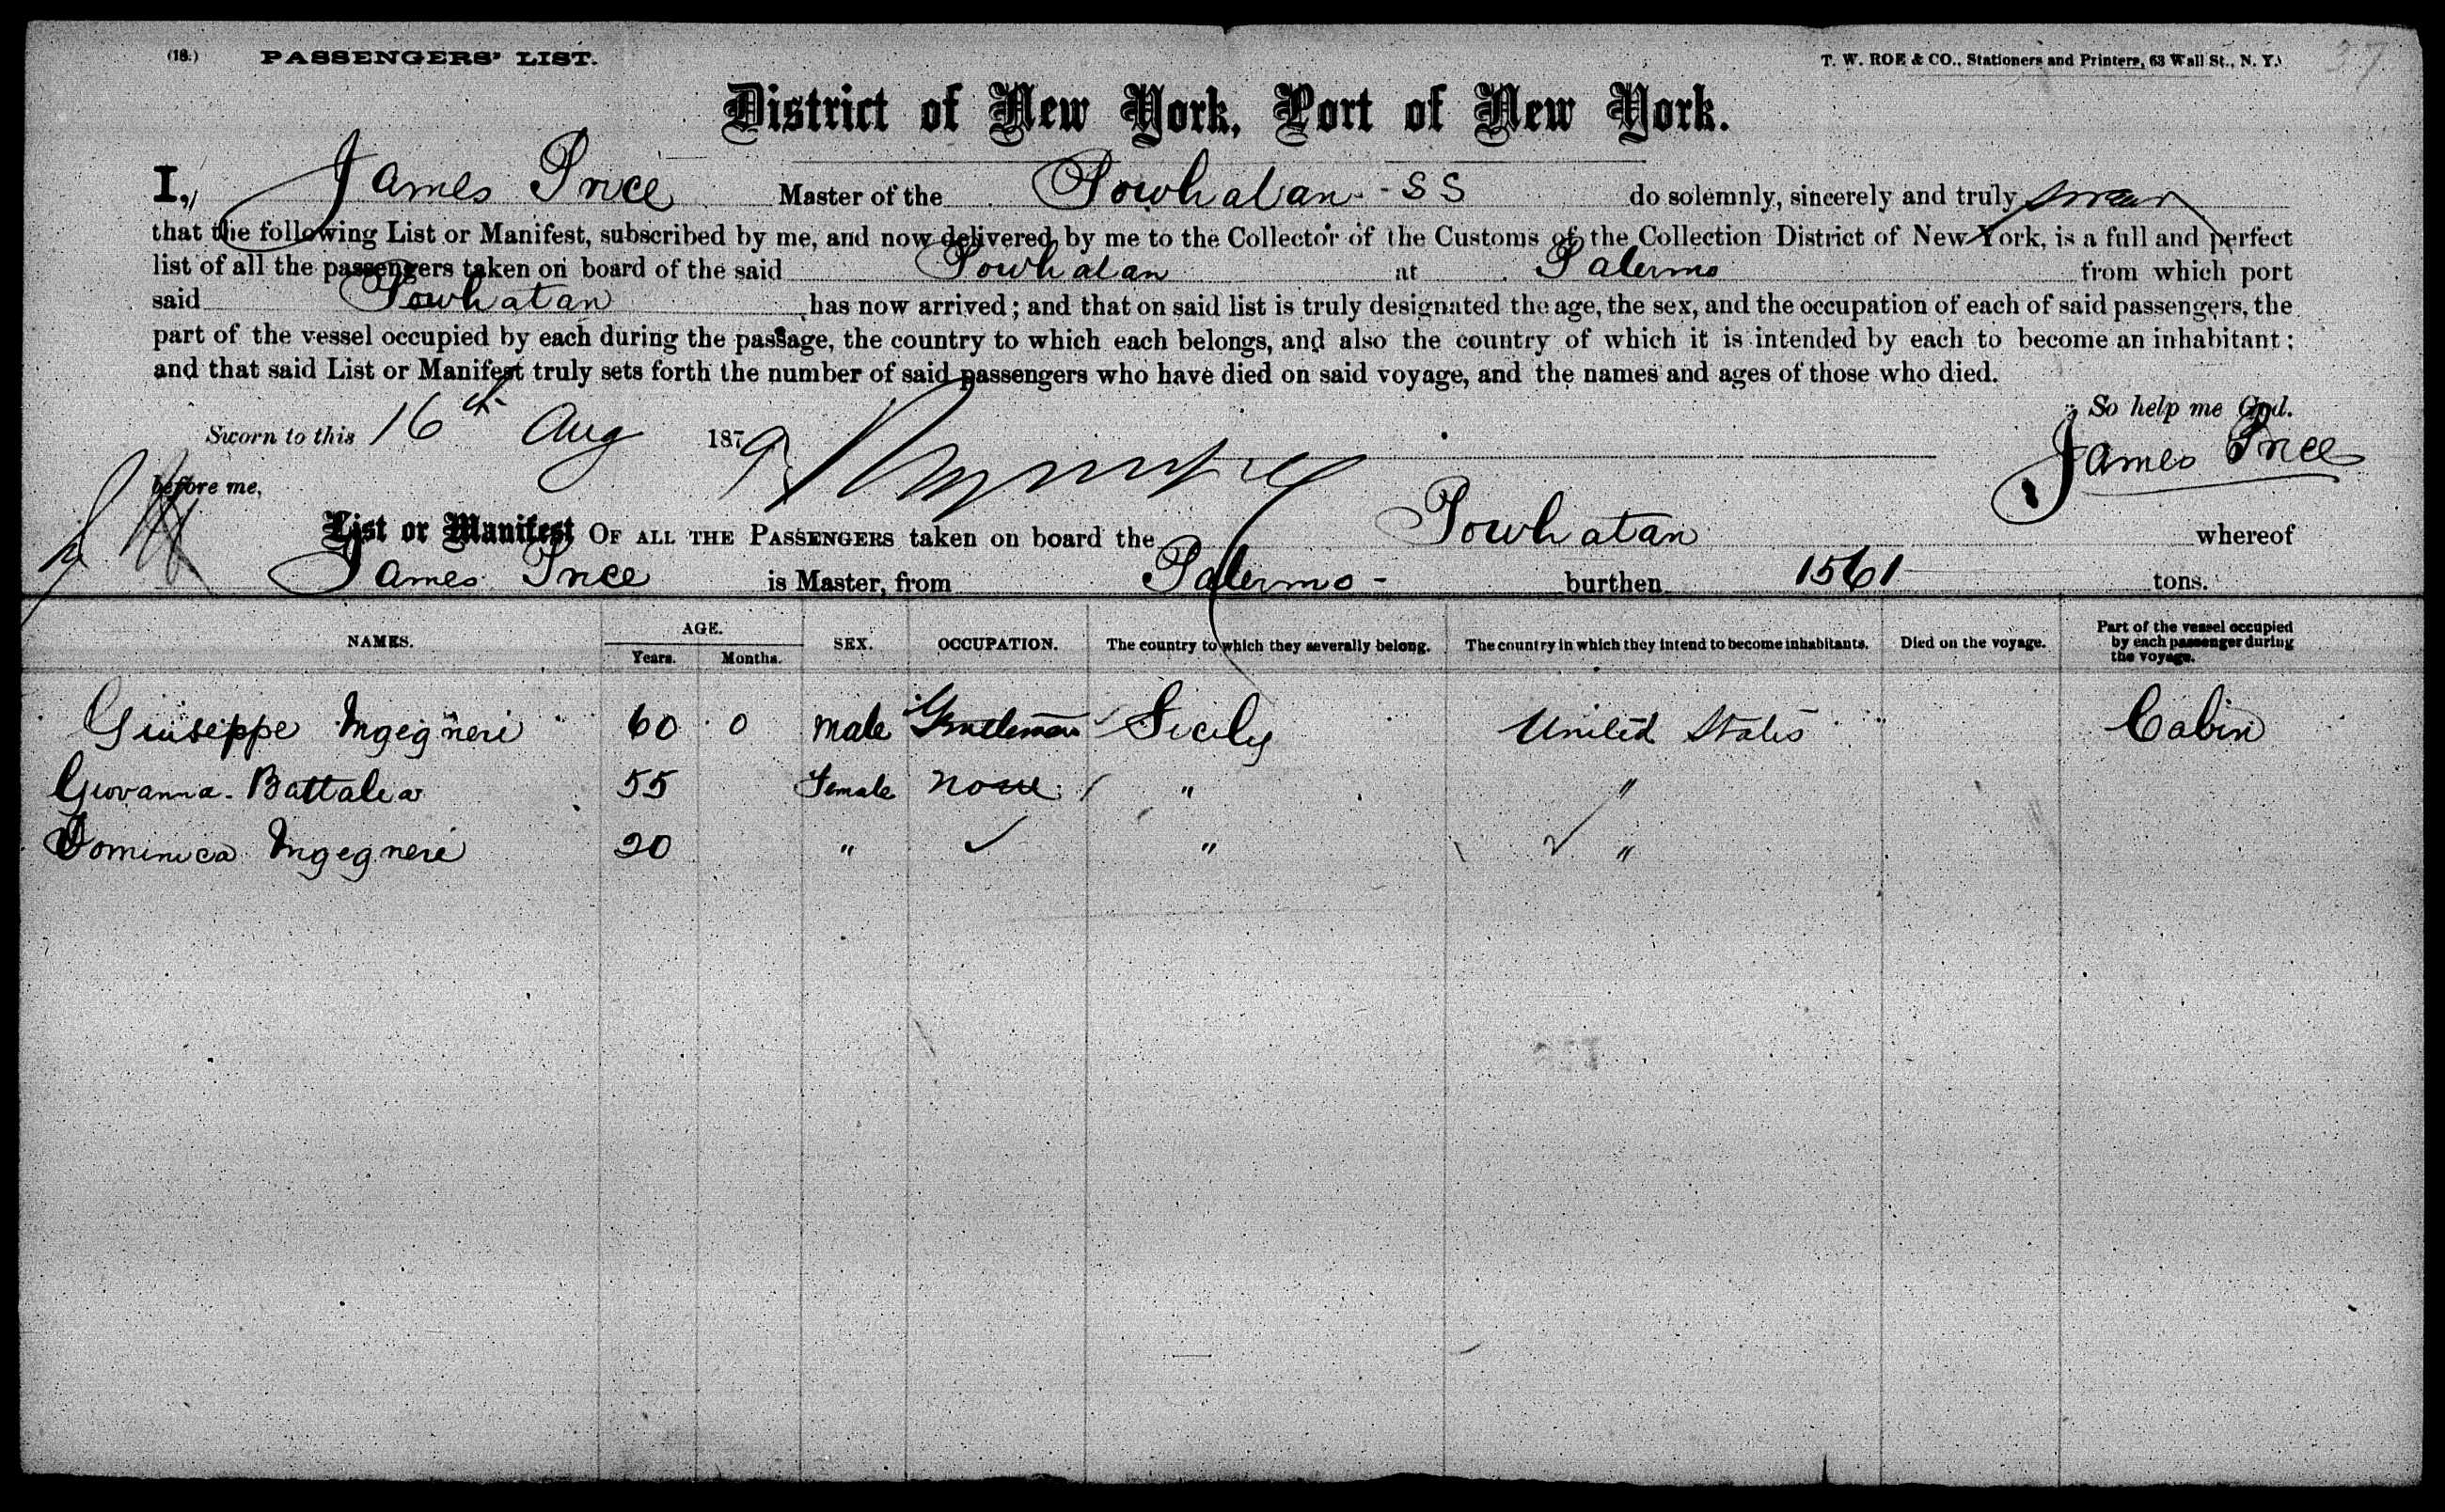 (18.) PASSENGERS' LIST. T. W. ROE & CO., Stationers and Printers, 63 Wall St., N. Y. 37
District of New York, Port of New York.
I, James Price Master of the Powhatan - SS do solemnly, sincerely and truly swear
that the following List or Manifest, subscribed by me, and now delivered by me to the Collector of the Customs of the Collection District of New York, is a full and perfect
list of all the passengers taken on board of the said Powhatan at Palermo from which port
said Powhatan has now arrived; and that on said list is truly designated the age, the sex, and the occupation of each of said passengers, the
part of the vessel occupied by each during the passage, the country to which each belongs, and also the country of which it is intended by each to become an inhabitant;
and that said List or Manifest truly sets forth the number of said passengers who have died on said voyage, and the names and ages of those who died.
So help me God.
Sworn to this 16th Aug 1879 James Price
before me,
List or Manifest OF ALL THE PASSENGERS taken on board the Powhatan whereof
James Price is Master, from Palermo - burthen 1561 tons.
NAMES. AGE. Years. Months. SEX. OCCUPATION. The country to which they severally belong. The country in which they intend to become inhabitants. Died on the voyage. Part of the vessel occupied by each passenger during the voyage.
Giuseppe Ingegneri 60 0 male Gentleman Sicily United States Cabin
Giovanna Battalia 55 Female None " "
Dominica Ingegneri 20 " ✓ " ✓ "